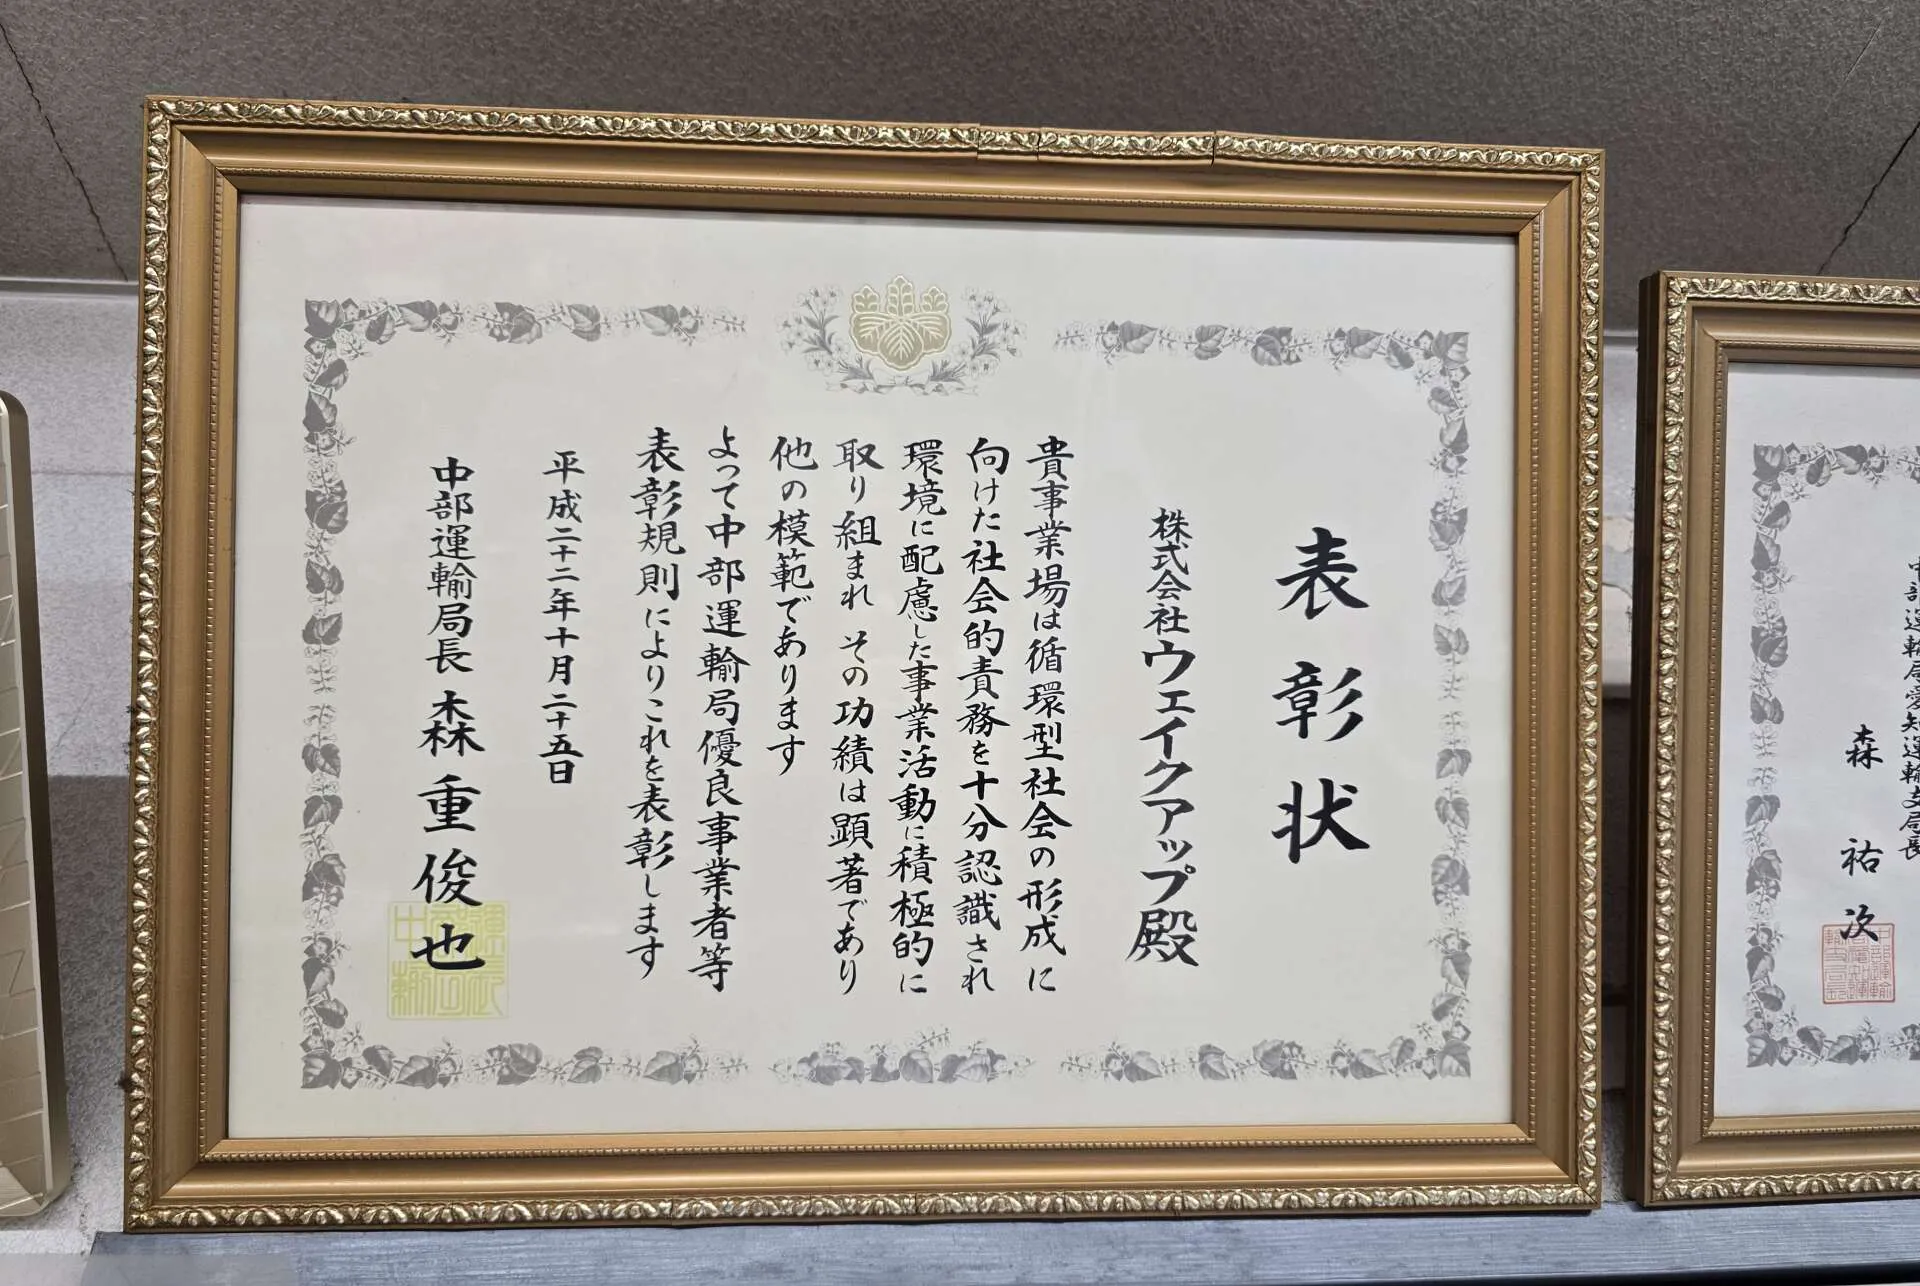 表彰状
株式会社ウェイクアップ殿
貴事業場は循環型社会の形成に
向けた社会的責務を十分認識され
環境に配慮した事業活動に積極的に
取り組まれ その功績は顕著であり
他の模範であります
よって中部運輸局優良事業者等
表彰規則によりこれを表彰します
平成二十二年十月二十五日
中部運輸局長 森重俊也
中部運輸局愛知運輸支局長
森祐次